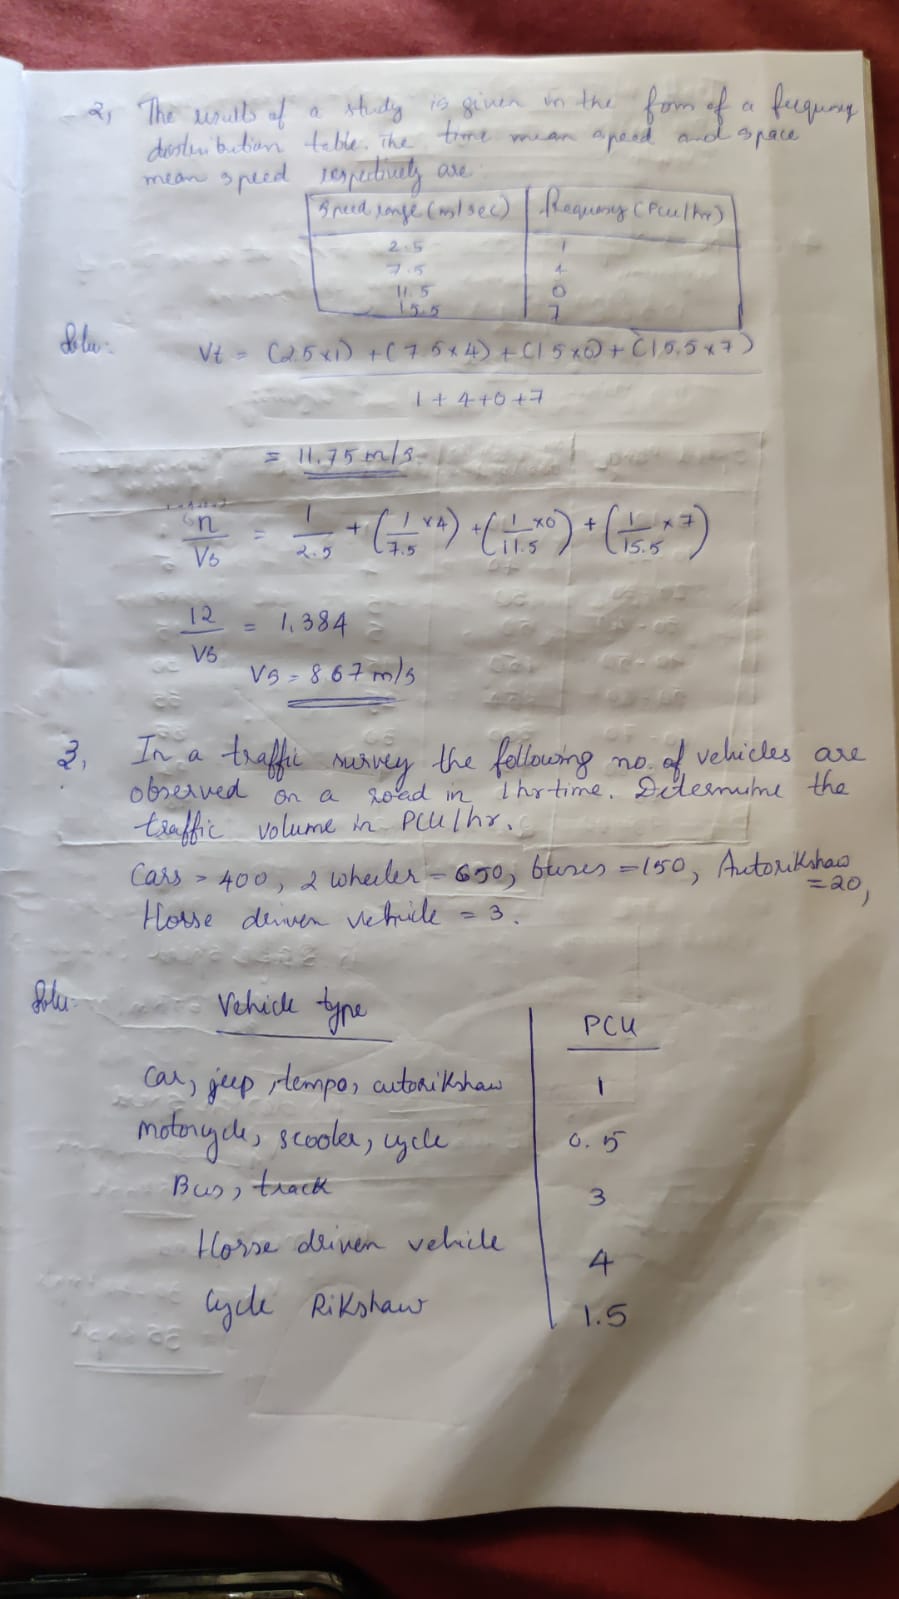 2, The results of a study is given in the form of a frequency
distribution table. The time mean speed and space
mean speed respectively are:
Speed range (m/sec) Frequency (PCU/hr)
2.5 1
7.5 4
11.5 0
15.5 7
Solu: Vt = (2.5x1) + (7.5x4) + (1 5x0) + (15.5x7)
1 + 4+0+7
= 11.75 m/s
n/Vs = 1/2.5 + (1/7.5 x4) + (1/11.5 x0) + (1/15.5 x 7)
12/Vs = 1.384
Vs = 8 67 m/s
3, In a traffic survey the following no. of vehicles are
observed on a road in 1hr time. Determine the
traffic volume in PCU/hr.
Cars = 400, 2 wheeler = 650, buses = 150, Autorikshaw
= 20,
Horse driven vehicle = 3.
Solu: Vehicle type PCU
Car, jeep, tempo, autorikshaw 1
Motorcycle, scooter, cycle 0.5
Bus, track 3
Horse driven vehicle 4
Cycle Rikshaw 1.5